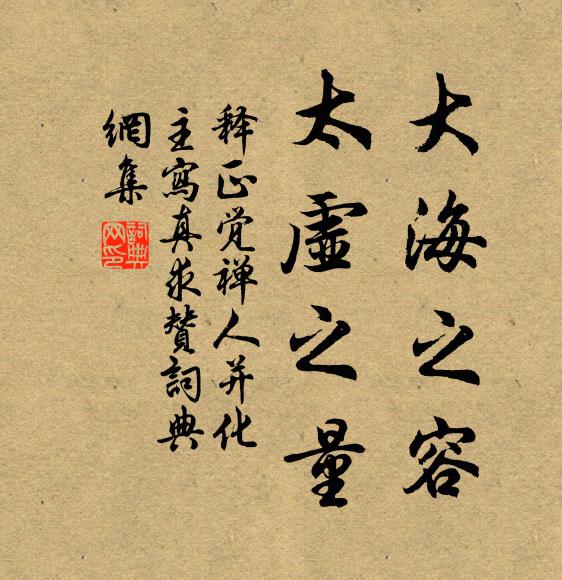 大海之容
太虛之量
释正觉禅人并化
主寫真求贊詞典
網集
詞典网印